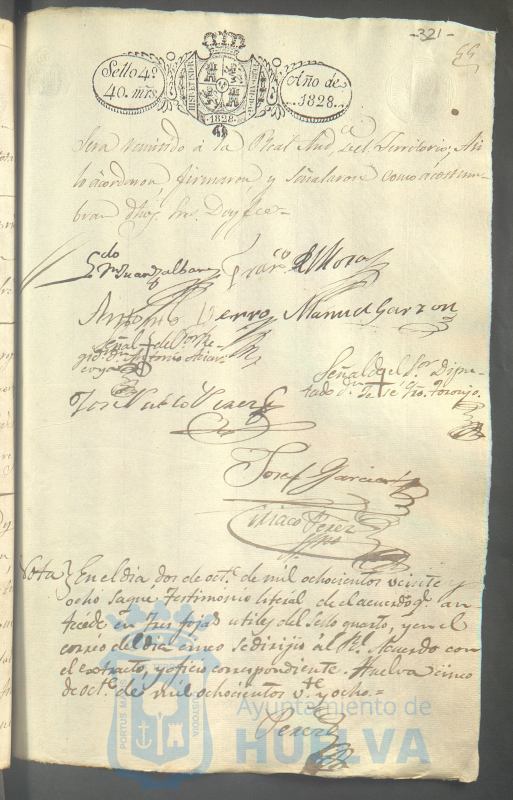 -321-
55
Sello 4.º
40. mrs.
HISP. ET IND. R
1828.
Año de
1828.
Sera remitido à la Real Aud.ª del Territorio; Asi
lo acordaron, firmaron, y señalaron como acostum-
bran dhos. Sres. Doy fee=
Ldo
Juan
Fran.co de Mora
Antonio Hierro
Manuel Garzon
Señal + del Sr. Re-
gidor Dn. Antonio
Señal del Sr. Dipu-
tado Dn. + José
Josef Garcia
Ciriaco Perez
Nota} En el dia dos de oct.e de mil ochocientos veinte y
ocho saque testimonio literal del acuerdo q.e an-
tecede en tres fojas utiles del sello quarto, y en el
correo del dia cinco se dirijio al Rl. Acuerdo con
el extracto, y oficio correspondiente. Huelva cinco
de oct.e de mil ochocientos v.te y ocho.=
Perez
PORTUS MARIS
CUSTODIA
Ayuntamiento de
HUELVA